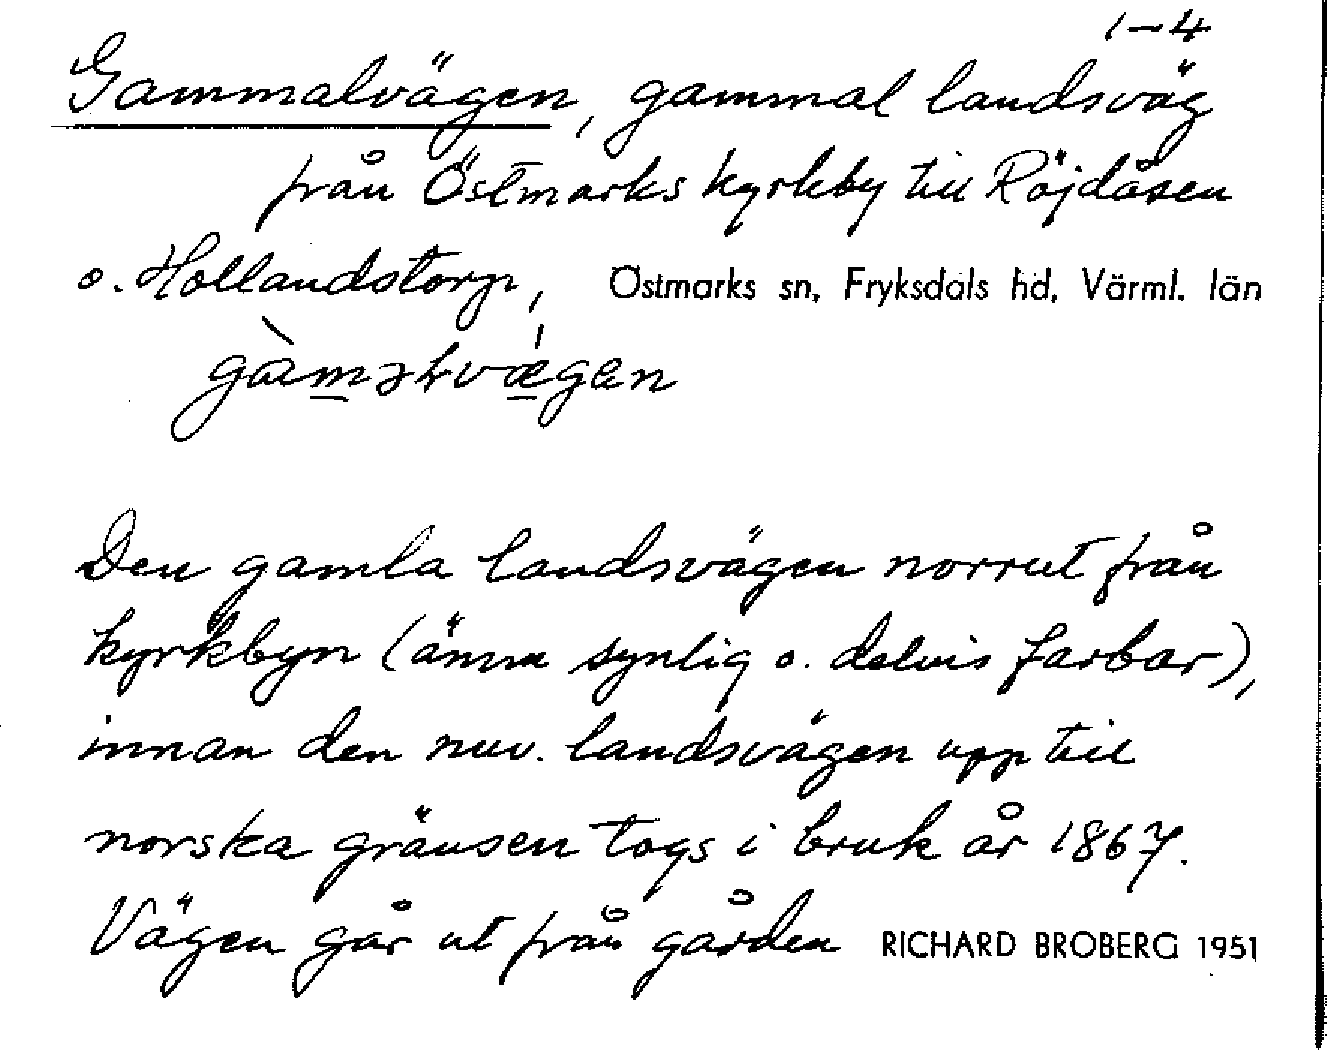 1–4
Gammalvägen, gammal landsväg
från Östmarks kyrkby till Röjdåsen
o. Hollandstorp, Östmarks sn, Fryksdals hd, Värml. län
Den gamla landsvägen norrut från
kyrkbyn (ännu synlig o. delvis farbar),
innan den nuv. landsvägen upp till
norska gränsen togs i bruk år 1867.
Vägen går ut från gården RICHARD BROBERG 1951